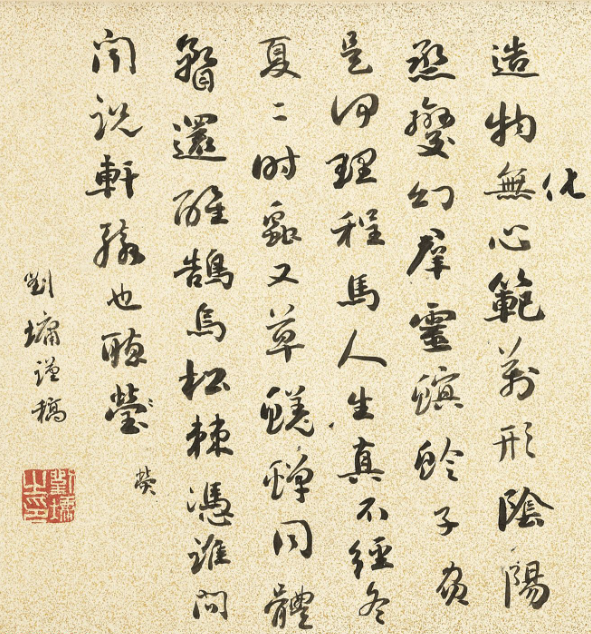 造物無心範萬形陰陽
化
烝變幻群靈螟蛉子負
是何理程馬人生真不經冬
夏二時蟲又草蟬同體
還鵠烏松棘憑誰問
聞說軒轅也聽瑩
熒
劉墉謹稿
劉墉之印